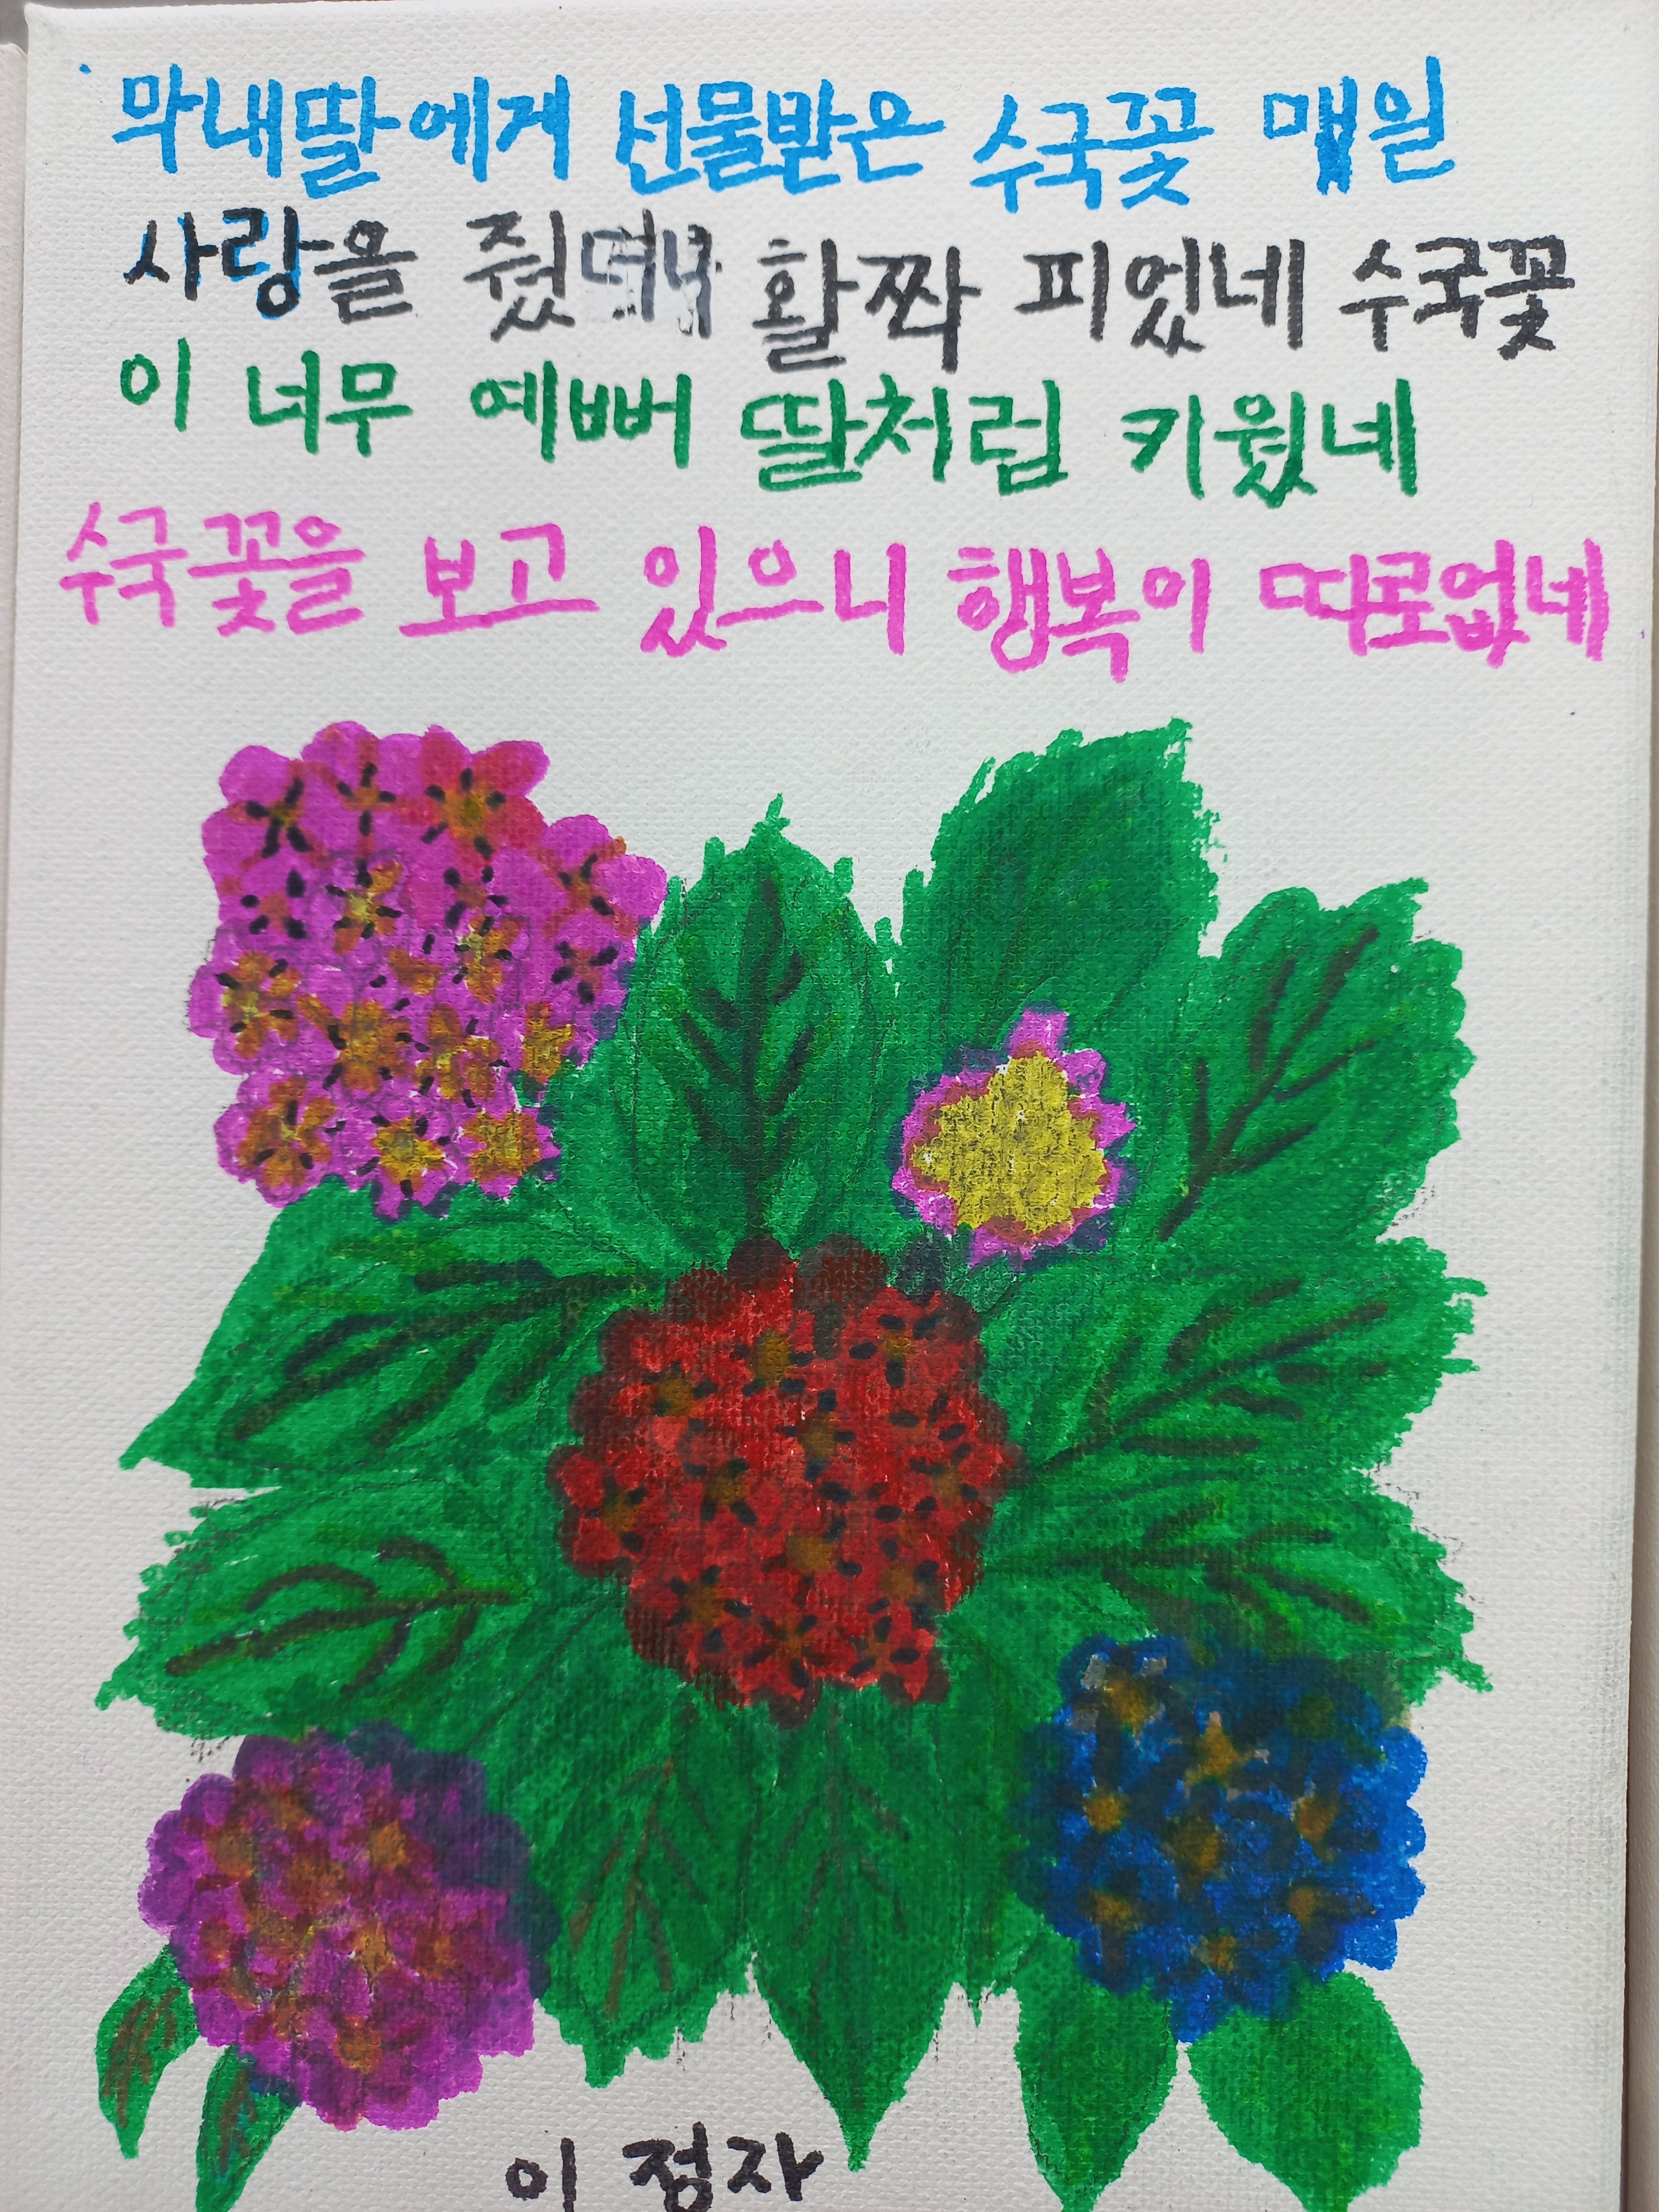 막내딸에게 선물받은 수국꽃 매일
사랑을 줬더니 활짝 피었네 수국꽃
이 너무 예뻐 딸처럼 키웠네
수국꽃을 보고 있으니 행복이 따로없네
이정자